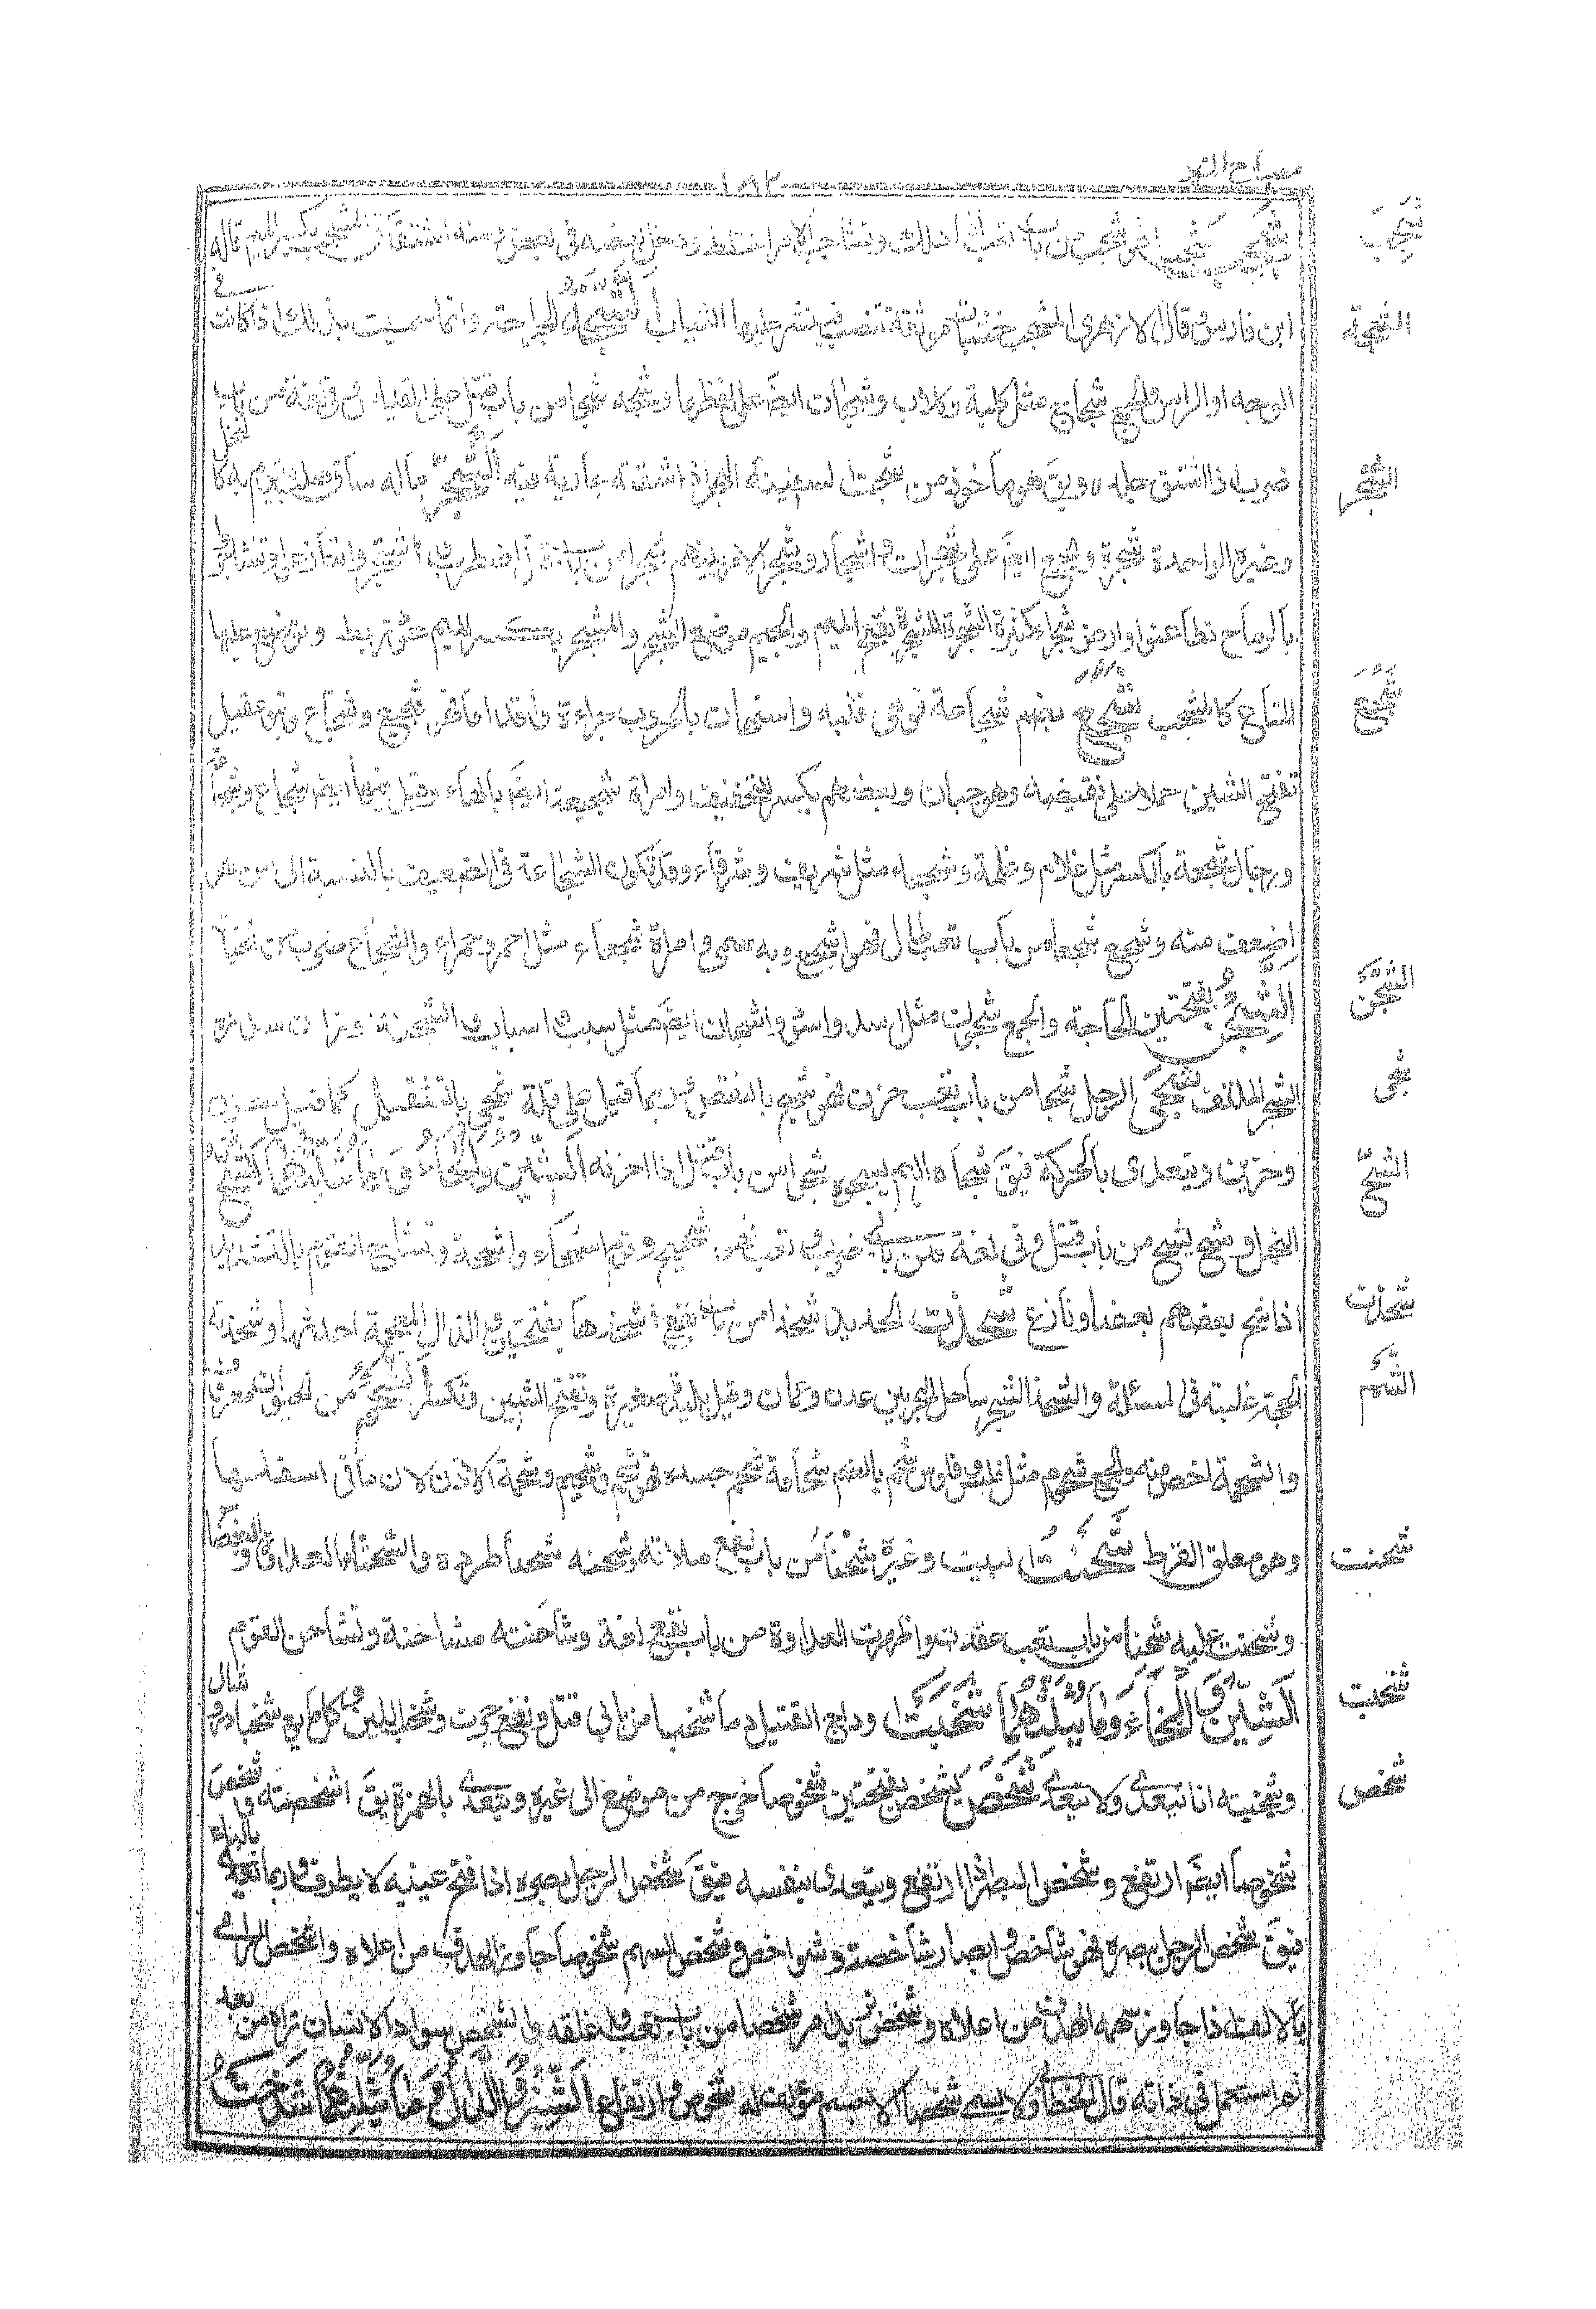 مصباح المنير
١٨٢
شجب
شجب شجبا فهو شجب من باب تعب اذا هلك وتشاجب الامر اختلط ودخل بعضه فى بعض ومنه اشتقاق المشجب بكسر الميم قاله
الشجة
ابن فارس وقال الازهرى المشجب خشبات موثقة تنصب فينشر عليها الثياب الشجة الجراحة وانما سميت بذلك اذا كانت فى
الوجه او الراس والجمع شجاج مثل كلبة وكلاب وشجات ايضَ على لفظها وشجه شجا من باب قتل على القياس وفى لغة من باب
الشجر
ضرب اذا شق جلده ويقَ هو ماخوذ من شجت السفينة البحر اذا شقته جارية فيه الشجر ماله ساق صلب يقوم به كالنخل
وغيره الواحدة شجرة ويجمع ايضَ على شجرات واشجار وشجر الامر بينهم شجرا من باب قتل اضطرب واشتجروا تنازعوا وتشاجروا
بالرماح تطاعنوا وارض شجراء كثيرة الشجر والمشجرة بفتح الميم والجيم موضع الشجر والمشجر بكسر الميم عيدان تربط ويوضع عليها
شجع
المتاع كالمشجب شجع بضم شجاعة قوى قلبه واستهان بالحروب جراءة واقداما فهو شجيع وشجاع وبنو عقيل
تفتح الشين حملا على نقيضه وهو جبان وبعضهم يكسر للتخفيف وامراة شجيعة ايضَ بالهاء وقيل فيها ايضَ شجاع وشجاعة
ورجال شجعة بالكسر مثل غلام وغلمة وشجعاء مثل شريف وشرفاء وقد تكون الشجاعة فى الضعيف بالنسبة الى من هو
اضعف منه وشجع شجعا من باب تعب طال فهو اشجع وبه سمى وامراة شجعاء مثل احمر وحمراء والشجاع ضرب من الحيات
الشجن
الشجن بفتحتين الحاجة والجمع شجون مثل اسد واسود واشجان ايضَ مثل سبب واسباب والشجنة وزان سدرة
شجى
الشجر الملتف شجى الرجل شجا من باب تعب حزن فهو شج بالنقص وربما قيل على قلة شجى بالتثقيل كما قيل حزن
الشح
وحزين ويتعدى بالحركة فيقَ شجاه الهم يشجوه شجوا من باب قتل اذا احزنه الشين والحاء وما يثلثهما الشح
البخل وشح يشح من باب قتل وفى لغة من بابى ضرب وتعب فهو شحيح وقوم اشحاء واشحة وتشاح القوم بالتشديد
شحذت
اذا شح بعضهم بعضا ونازع شحذت الحديدة شحذا من باب نفع اشحذها بفتحتين والذال المعجمة احددتها وشحذته
الشحم
الحجة غلبته فى المسئلة والشحر ساحل البحر بين عدن وعمان وقيل بليدة صغيرة وتفتح الشين وتكسر الشحم من الحيوان معروف
والشحمة اخص منه والجمع شحوم مثل فلس وفلوس وشحم بالضم شحامة كثر شحم جسده فهو شحيم وشحمة الاذن ما لان فى اسفلها
شحنت
وهو معلق القرط شحنت البيت وغيره شحنا من باب نفع ملاته وشحنه شحنا طرده والشحناء العداوة والبغضاء
وشحنت عليه شحنا من باب تعب عقدت واظهرت العداوة من باب نفع لغة وشاحنته مشاحنة وتشاحن القوم
شخبت
الشين والخاء وما يثلثهما شخبت اوداج القتيل دما شخبا من بابى قتل ونفع جرت وشخب اللبن وكل مايع شخبا در وسال
شخص
وشخبته انا يتعدى ولا يتعدى شخص يشخص بفتحتين شخوصا خرج من موضع الى غيره ويتعدى بالهمزة يقَ اشخصته وشخص
شخوصا ايضَ ارتفع وشخص البصر اذا ارتفع ويتعدى بنفسه فيقَ شخص الرجل بصره اذا فتح عينيه لا يطرف وربما تعدى بالباء
فيقَ شخص الرجل ببصره فهو شاخص وابصار شاخصة وشواخص وشخص السهم شخوصا جاوز الهدف من اعلاه واشخص الرامى
بالالف اذا جاوز سهمه الهدف من اعلاه وشخص يدل امر شخصا من باب تعب والشخص سواد الانسان تراه من بعد
ثم استعمل فى ذاته قال الخطابى ولا يسمى شخصا الا جسم مؤلف له شخوص وارتفاع الشين والدال وما يثلثهما شدخت